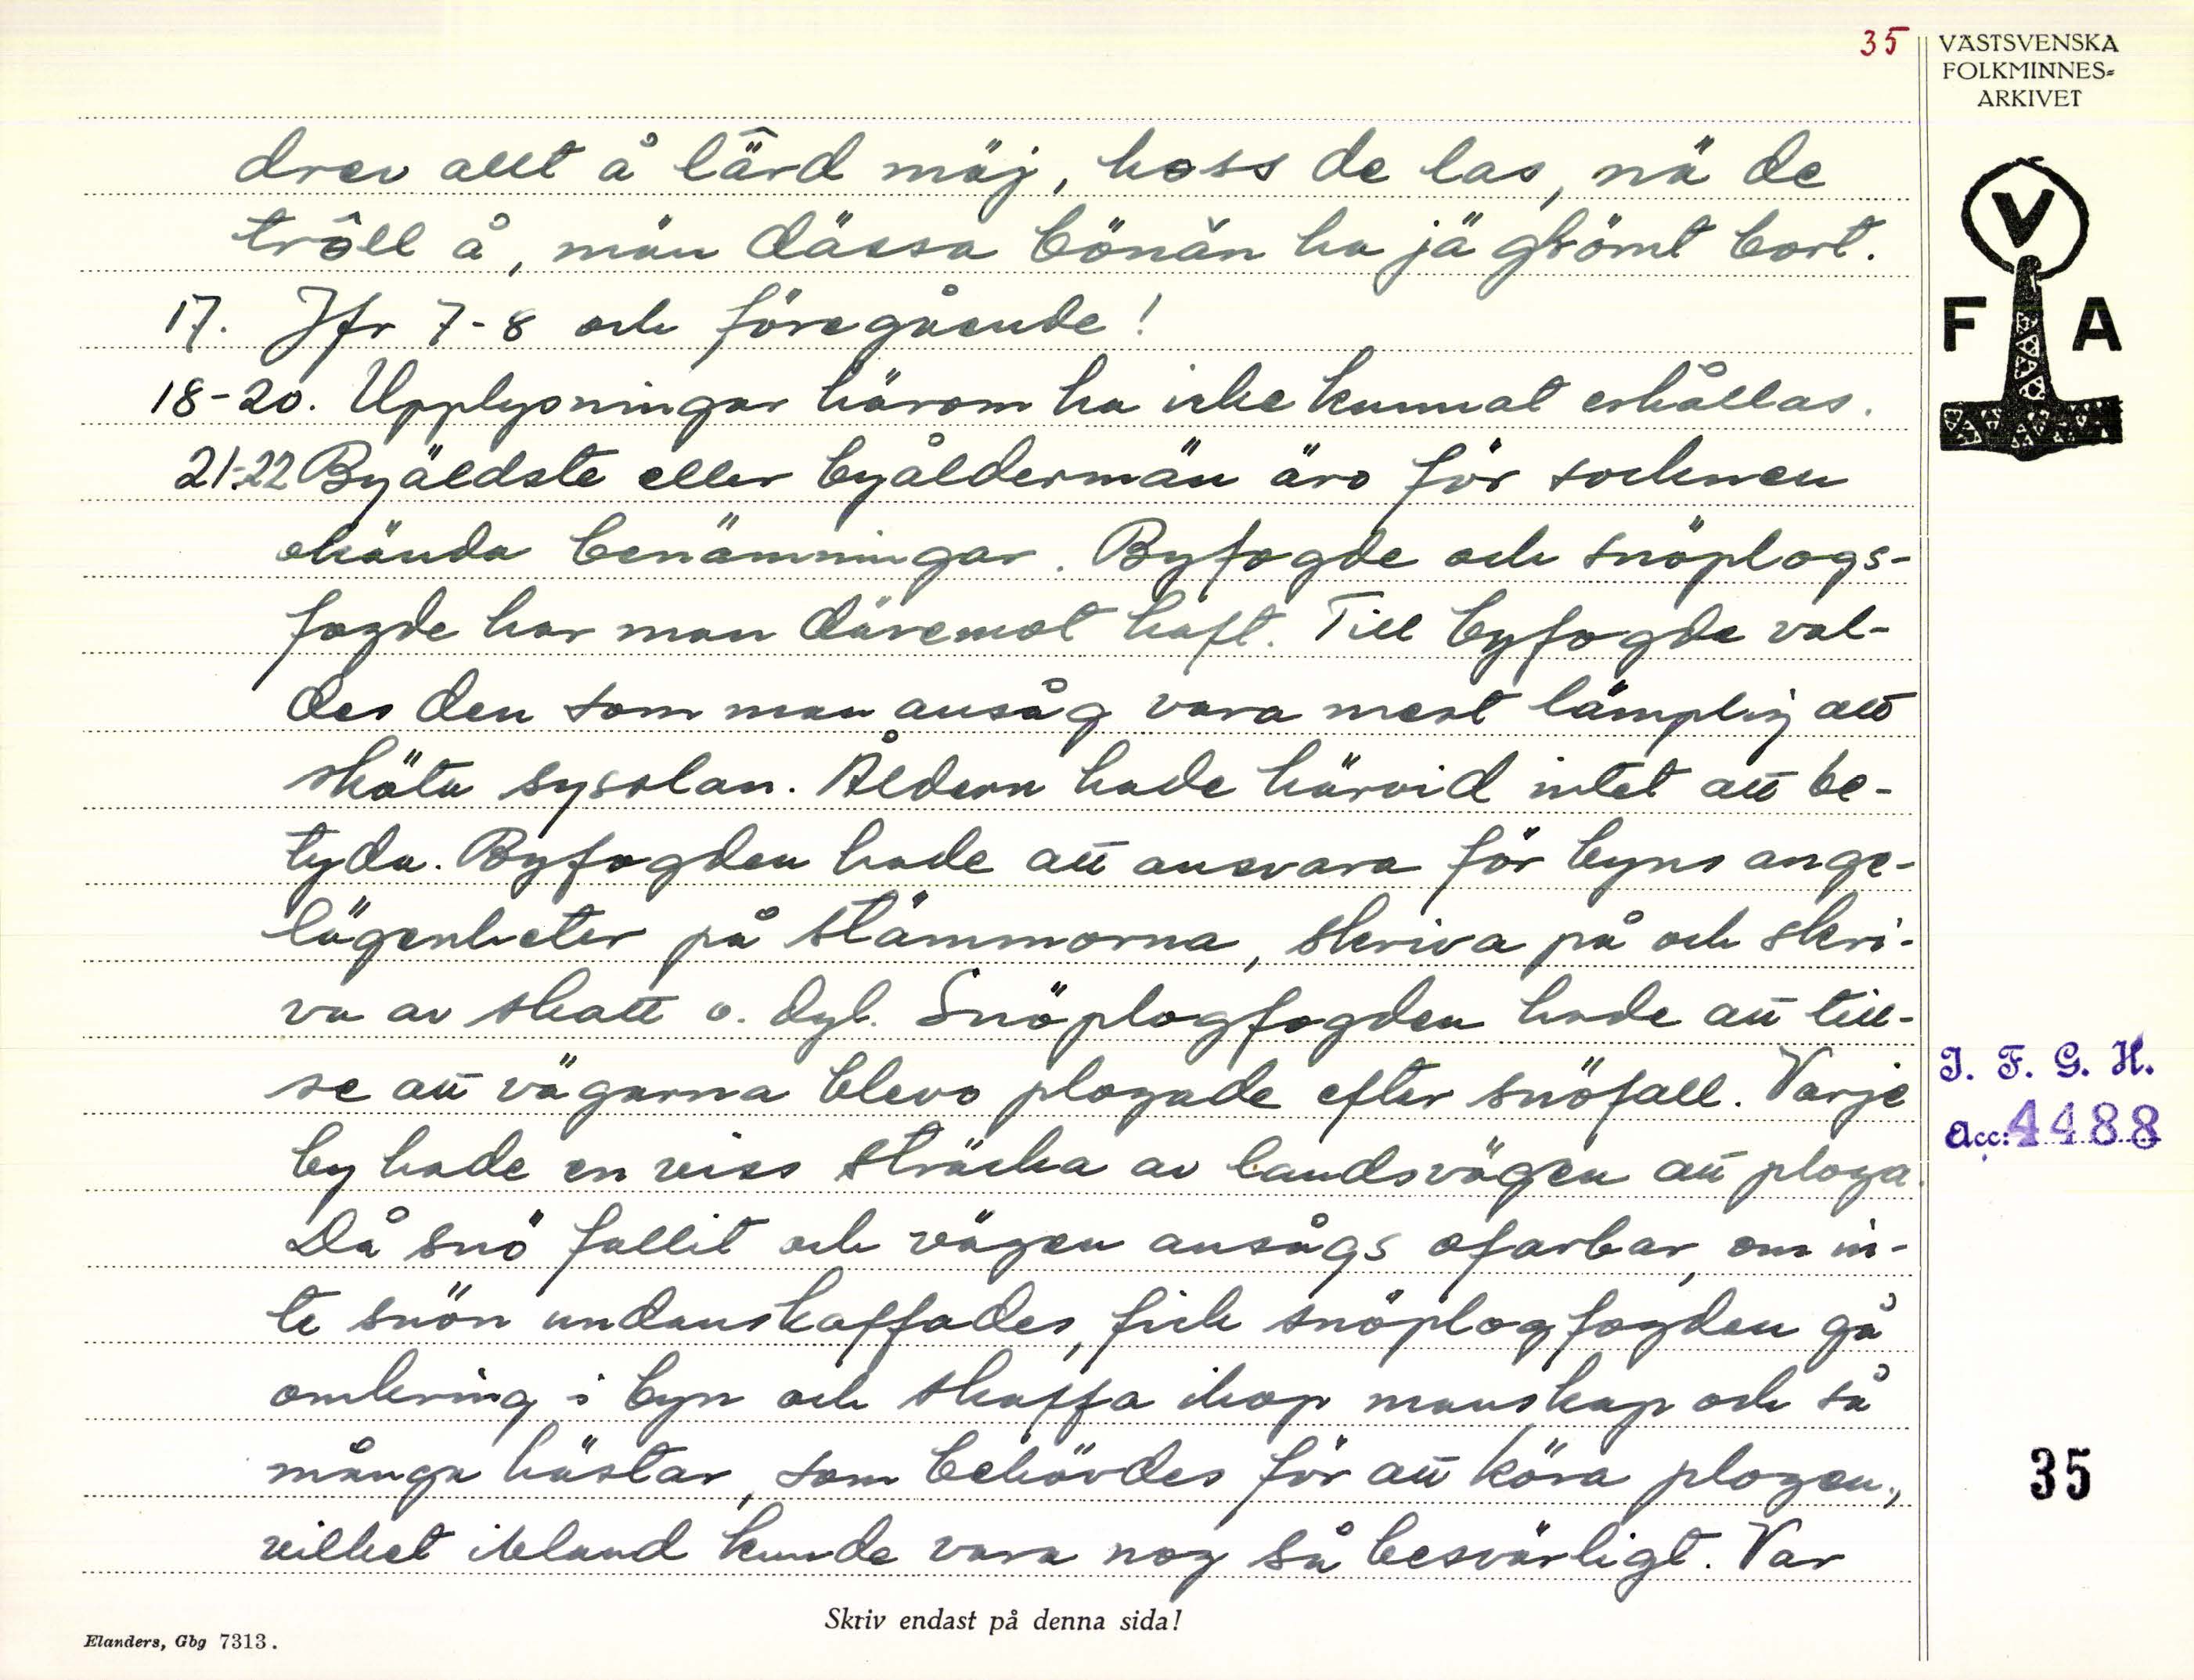 35
VÄSTSVENSKA
FOLKMINNES-
ARKIVET
drev allt å lärd mäj, hoss de las, nä de
trôll å, män dässa bönän ha jä glömt bort.
17. Jfr 7-8 och föregående!
18-20. Upplysningar härom ha icke kunnat erhållas.
21-22 Byäldste eller byåldermän äro för socknen
okända benämningar. Byfogde och snöplogs-
fogde har man däremot haft. Till byfogde val-
des den som man ansåg vara mest lämplig att
sköta sysslan. Åldern hade härvid intet att be-
tyda. Byfogden hade att ansvara för byns ange-
lägenheter på stämmorna, skriva på och skri-
va av skatt o. dyl. Snöplogfogden hade att till-
se att vägarna blevo plogade efter snöfall. Varje
by hade en viss sträcka av landsvägen att ploga.
Då snö fallit och vägen ansågs ofarbar, om in-
te snön undanskaffades, fick snöplogfogden gå
omkring i byn och skaffa ihop manskap och så
många hästar, som behövdes för att köra plogen,
vilket ibland kunde vara nog så besvärligt. Var
V
F A
I. F. G. H.
Acc: 4488
35
Skriv endast på denna sida!
Elanders, Gbg 7313.